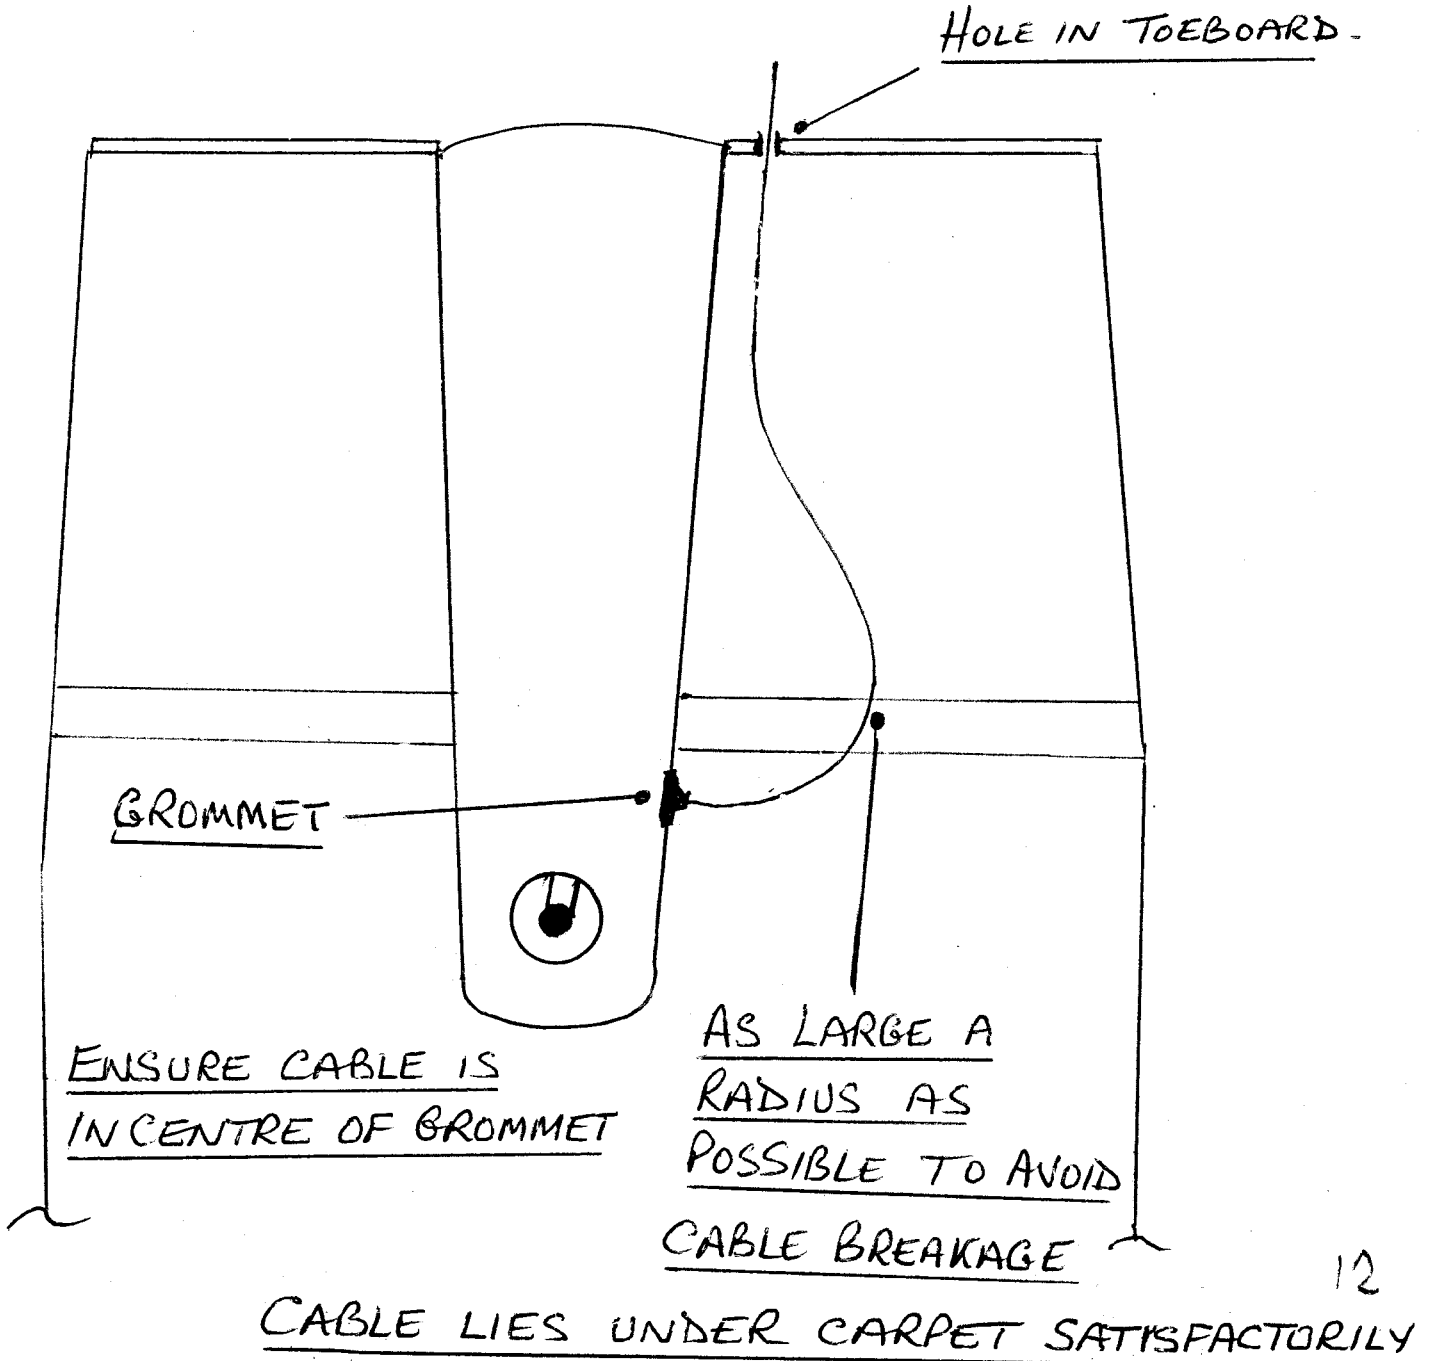 HOLE IN TOEBOARD.
GROMMET
ENSURE CABLE IS
IN CENTRE OF GROMMET
AS LARGE A
RADIUS AS
POSSIBLE TO AVOID
CABLE BREAKAGE
12
CABLE LIES UNDER CARPET SATISFACTORILY